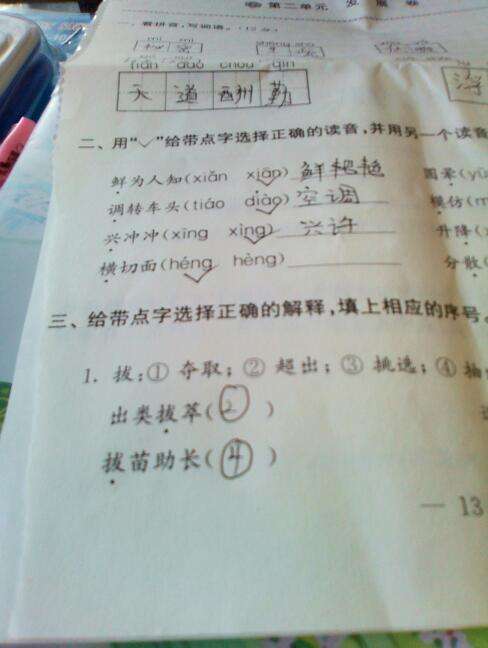 第二单元 发展卷
一、看拼音,写词语。
mì mì
秘密
tiān dào chóu qín
天道酬勤
二、用“✓”给带点字选择正确的读音,并用另一个读音
鲜为人知(xiān xiǎn) 鲜艳
调转车头(tiáo diào) 空调
兴冲冲(xīng xìng) 兴许
横切面(héng hèng)
模仿(m
升降(
分散(
三、给带点字选择正确的解释,填上相应的序号。
1. 拔:① 夺取;② 超出;③ 挑选;④ 抽
出类拔萃(② )
拔苗助长(④ )
— 13